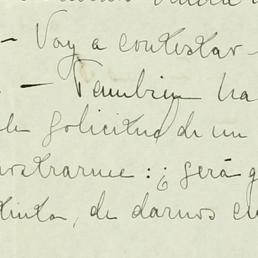 - Voy a contestar -
- Tambien ha
solicitud de un
ostrarme: ¿ será q
tinta, de darnos cu